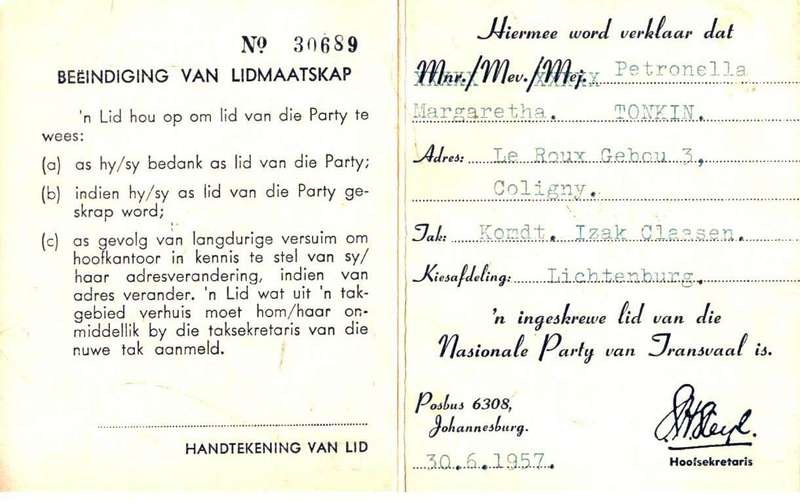 Nº 30689
BEËINDIGING VAN LIDMAATSKAP
'n Lid hou op om lid van die Party te
wees:
(a) as hy/sy bedank as lid van die Party;
(b) indien hy/sy as lid van die Party ge-
skrap word;
(c) as gevolg van langdurige versuim om
hoofkantoor in kennis te stel van sy/
haar adresverandering, indien van
adres verander. 'n Lid wat uit 'n tak-
gebied verhuis moet hom/haar on-
middellik by die taksekretaris van die
nuwe tak aanmeld.
HANDTEKENING VAN LID
Hiermee word verklaar dat
Mnr./Mev./Mej. Petronella
Margaretha. TONKIN.
Adres: Le Roux Gebou 3,
Coligny.
Tak: Komdt. Izak Claasen.
Kiesafdeling: Lichtenburg.
'n ingeskrewe lid van die
Nasionale Party van Transvaal is.
Posbus 6308,
Johannesburg.
30.6.1957.
Hoofsekretaris